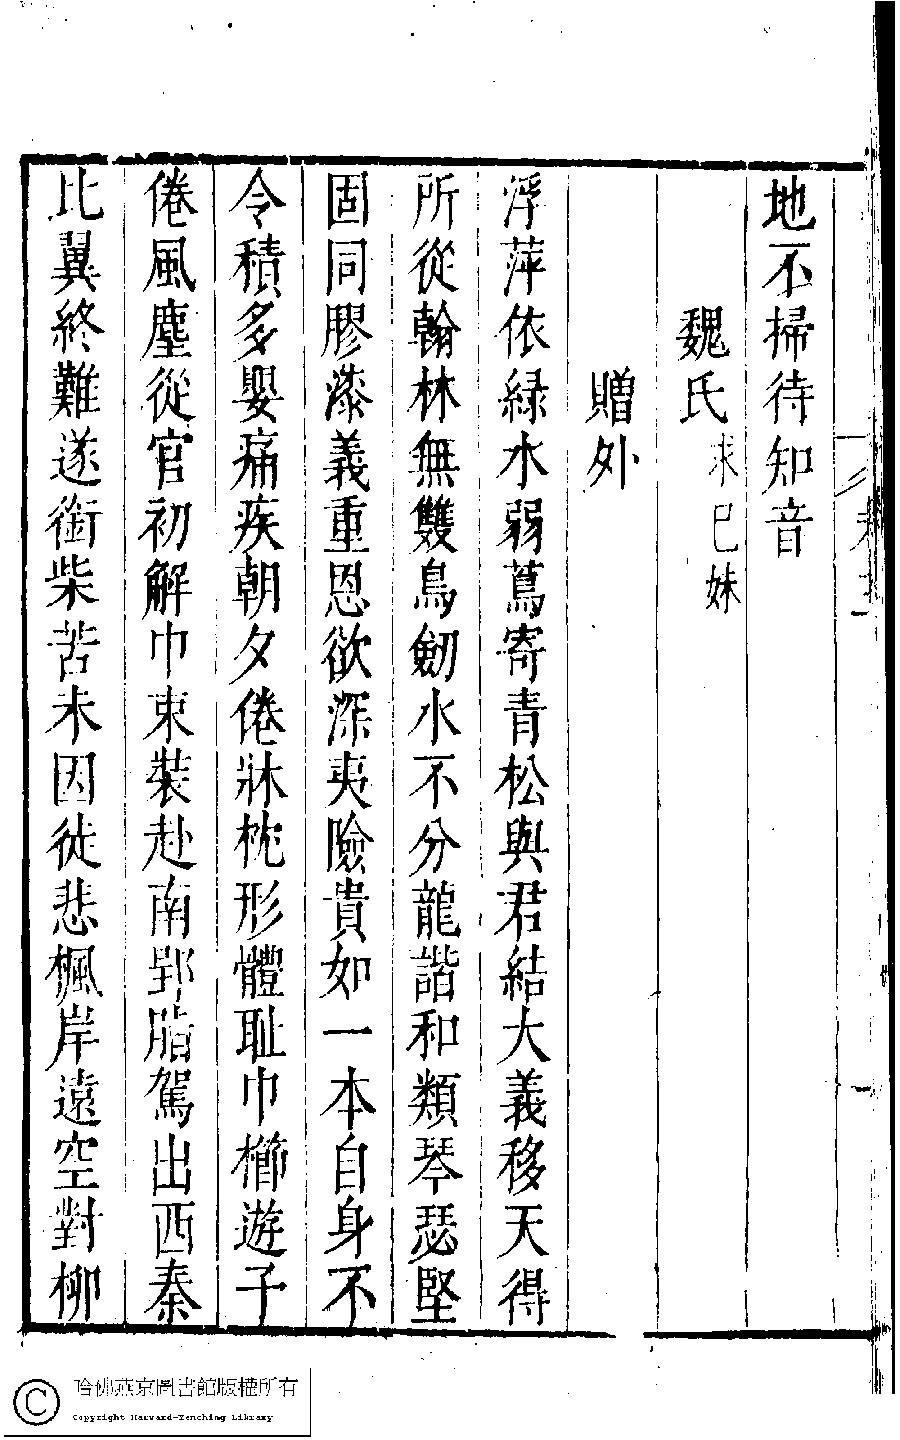 地不掃待知音
魏氏求已妹
贈外
浮萍依緑水弱蔦寄青松與君結大義移天得
所從翰林無雙鳥劒水不分龍諧和類琴瑟堅
固同膠漆義重恩欲深夷險貴如一本自身不
令積多嬰痛疾朝夕倦牀枕形體耻巾櫛遊子
倦風塵從官初解巾束裝赴南郢脂駕出西秦
比翼終難遂銜柴苦未因徒悲楓岸遠空對柳
哈佛燕京圖書館版權所有
Copyright Harvard-Yenching Library